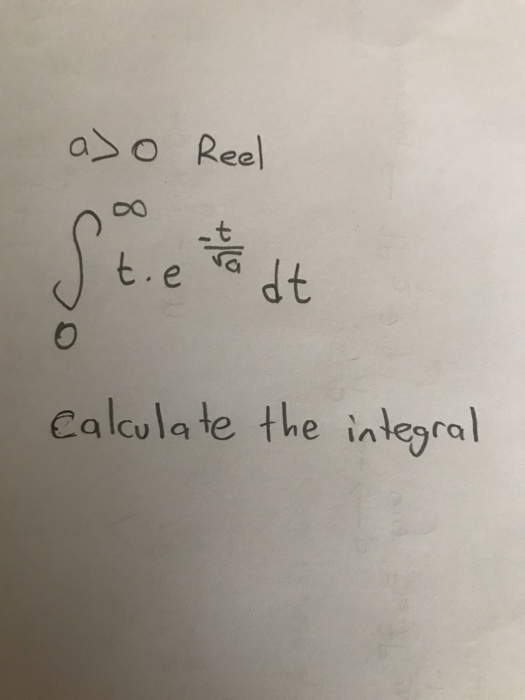 a>0 Reel
∫₀^∞ t.e^(-t/√a) dt
Calculate the integral